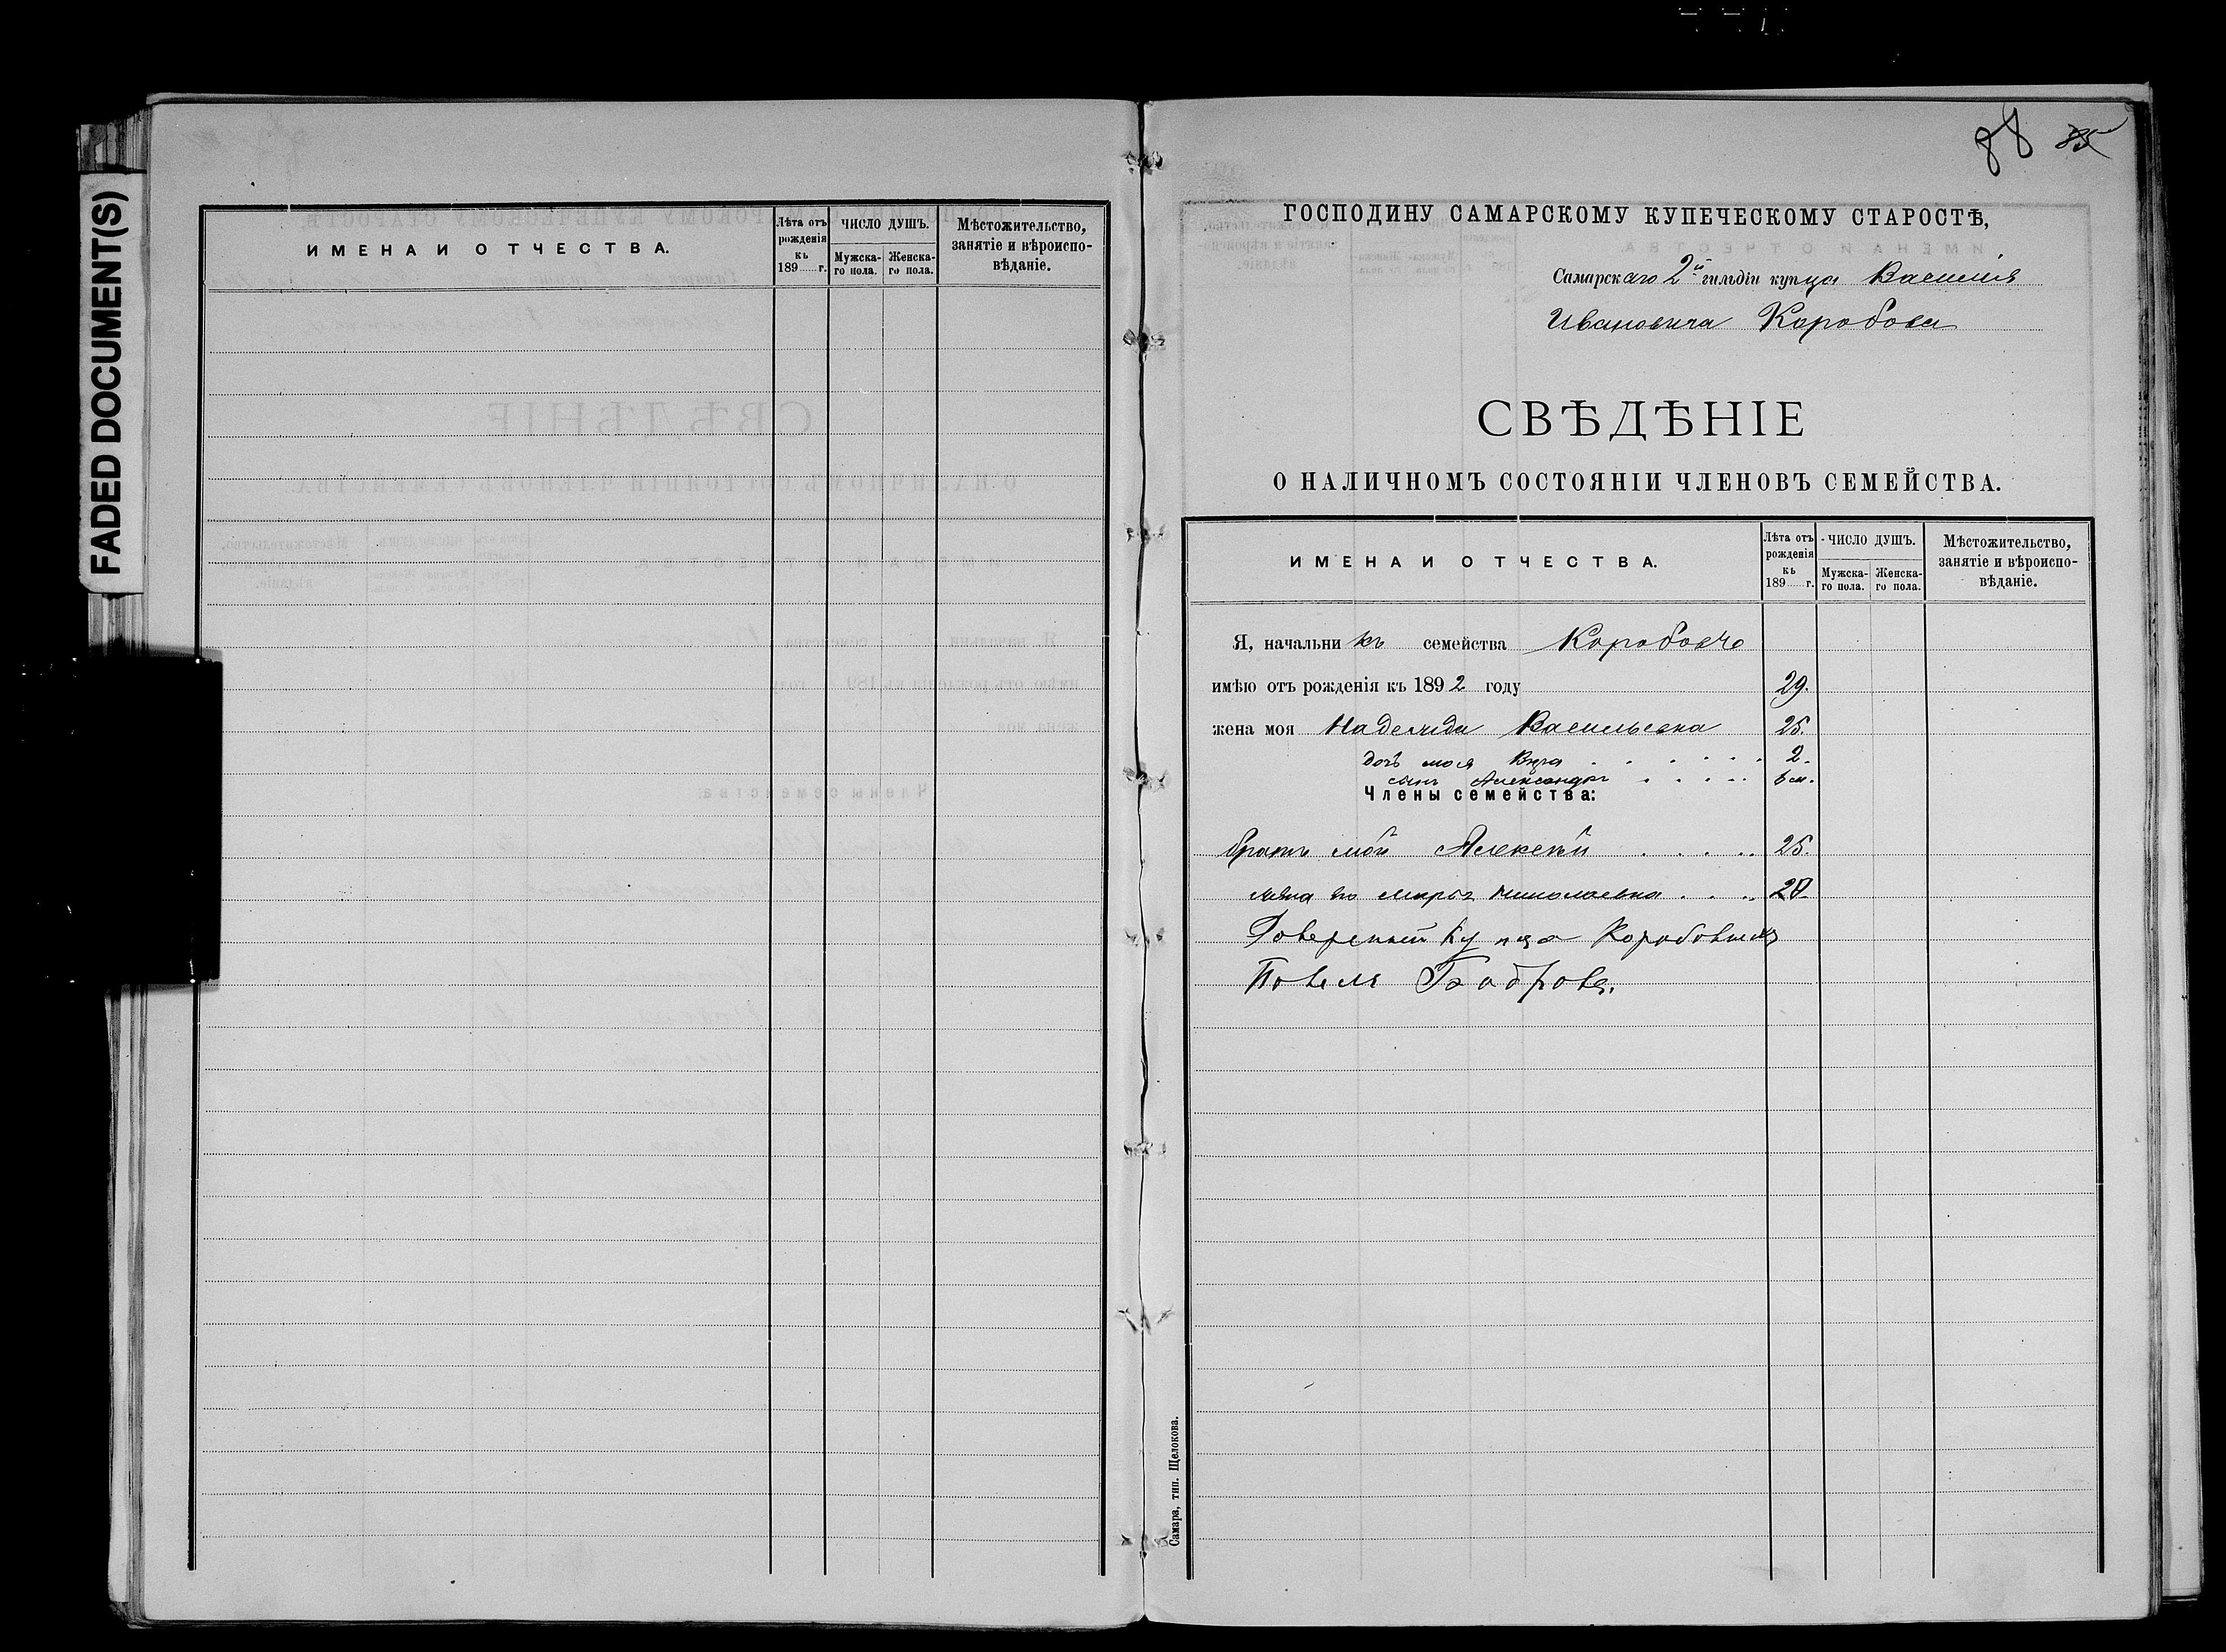 FADED DOCUMENT(S)
ИМЕНА И ОТЧЕСТВА.
Лѣта отъ рожденія къ 189 г.
ЧИСЛО ДУШЪ.
Мужска-го пола.
Женска-го пола.
Мѣстожительство, занятіе и вѣроиспо-вѣданіе.
88 85
ГОСПОДИНУ САМАРСКОМУ КУПЕЧЕСКОМУ СТАРОСТѢ,
Самарскаго 2й гильдіи купца Василія
Ивановича Коробова
СВѢДѢНІЕ
О НАЛИЧНОМЪ СОСТОЯНІИ ЧЛЕНОВЪ СЕМЕЙСТВА.
ИМЕНА И ОТЧЕСТВА.
Лѣта отъ рожденія къ 189 г.
ЧИСЛО ДУШЪ.
Мужска-го пола.
Женска-го пола.
Мѣстожительство, занятіе и вѣроиспо-вѣданіе.
Я, начальникъ семейства Коробовъ
имѣю отъ рожденія къ 1892 году 29.
жена моя Надежда Васильевна 25.
дочь моя Вѣра 2.
сынъ Александръ 6 м.
Члены семейства:
братъ мой Алексѣй 25.
жена его Николаевна 20.
Довереный Купца Коробова
Павелъ Бобровъ.
Самара, тип. Щелокова.